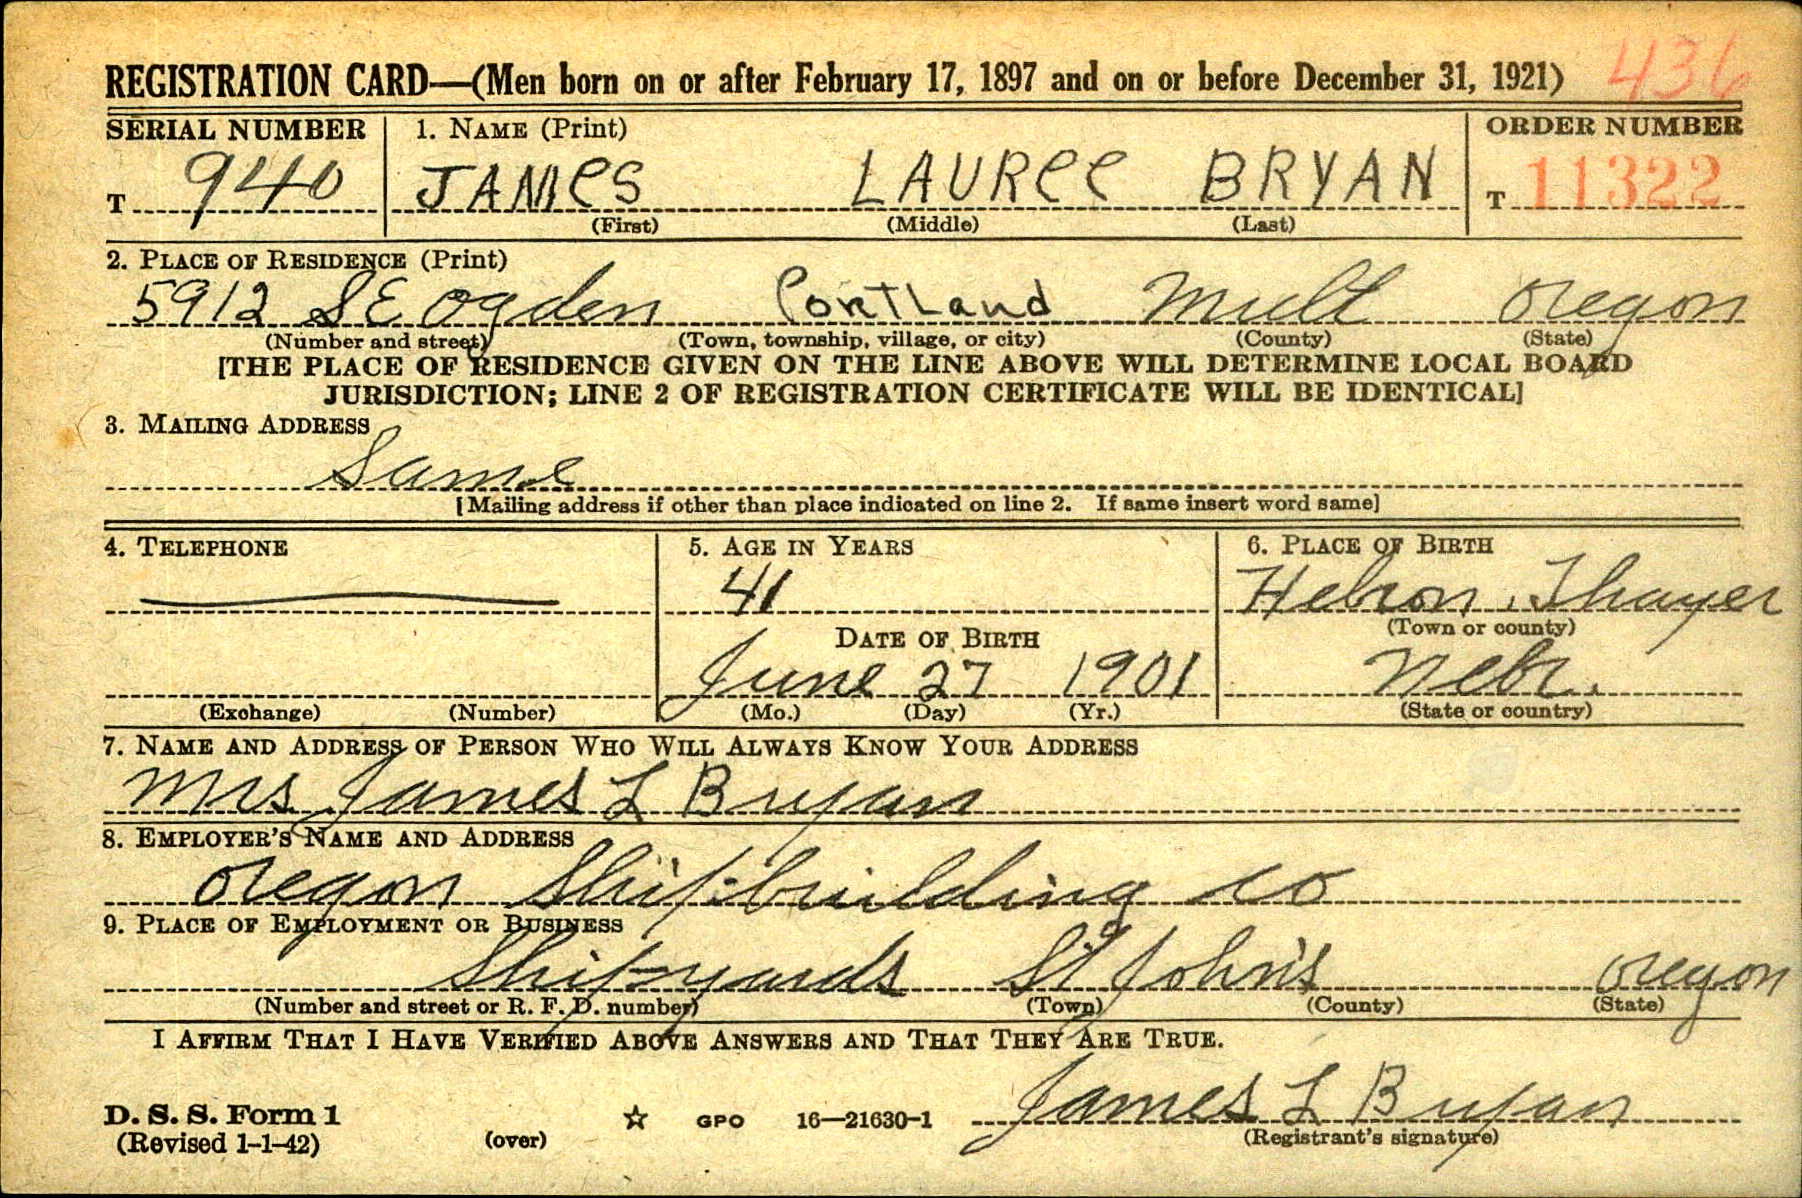 436
REGISTRATION CARD—(Men born on or after February 17, 1897 and on or before December 31, 1921)
SERIAL NUMBER 1. NAME (Print) ORDER NUMBER
T 940 JAMES LAUREE BRYAN T 11322
(First) (Middle) (Last)
2. PLACE OF RESIDENCE (Print)
5912 SE Ogden Portland Mult Oregon
(Number and street) (Town, township, village, or city) (County) (State)
[THE PLACE OF RESIDENCE GIVEN ON THE LINE ABOVE WILL DETERMINE LOCAL BOARD
JURISDICTION; LINE 2 OF REGISTRATION CERTIFICATE WILL BE IDENTICAL]
3. MAILING ADDRESS
Same
[Mailing address if other than place indicated on line 2. If same insert word same]
4. TELEPHONE 5. AGE IN YEARS 6. PLACE OF BIRTH
41 Hebron, Thayer
(Town or county)
DATE OF BIRTH
June 27 1901 Nebr.
(Exchange) (Number) (Mo.) (Day) (Yr.) (State or country)
7. NAME AND ADDRESS OF PERSON WHO WILL ALWAYS KNOW YOUR ADDRESS
Mrs James L Bryan
8. EMPLOYER'S NAME AND ADDRESS
Oregon Ship-building Co
9. PLACE OF EMPLOYMENT OR BUSINESS
Ship-yards St John's Oregon
(Number and street or R. F. D. number) (Town) (County) (State)
I AFFIRM THAT I HAVE VERIFIED ABOVE ANSWERS AND THAT THEY ARE TRUE.
James L Bryan
D. S. S. Form 1 ☆ GPO 16—21630-1
(Revised 1-1-42) (over) (Registrant's signature)